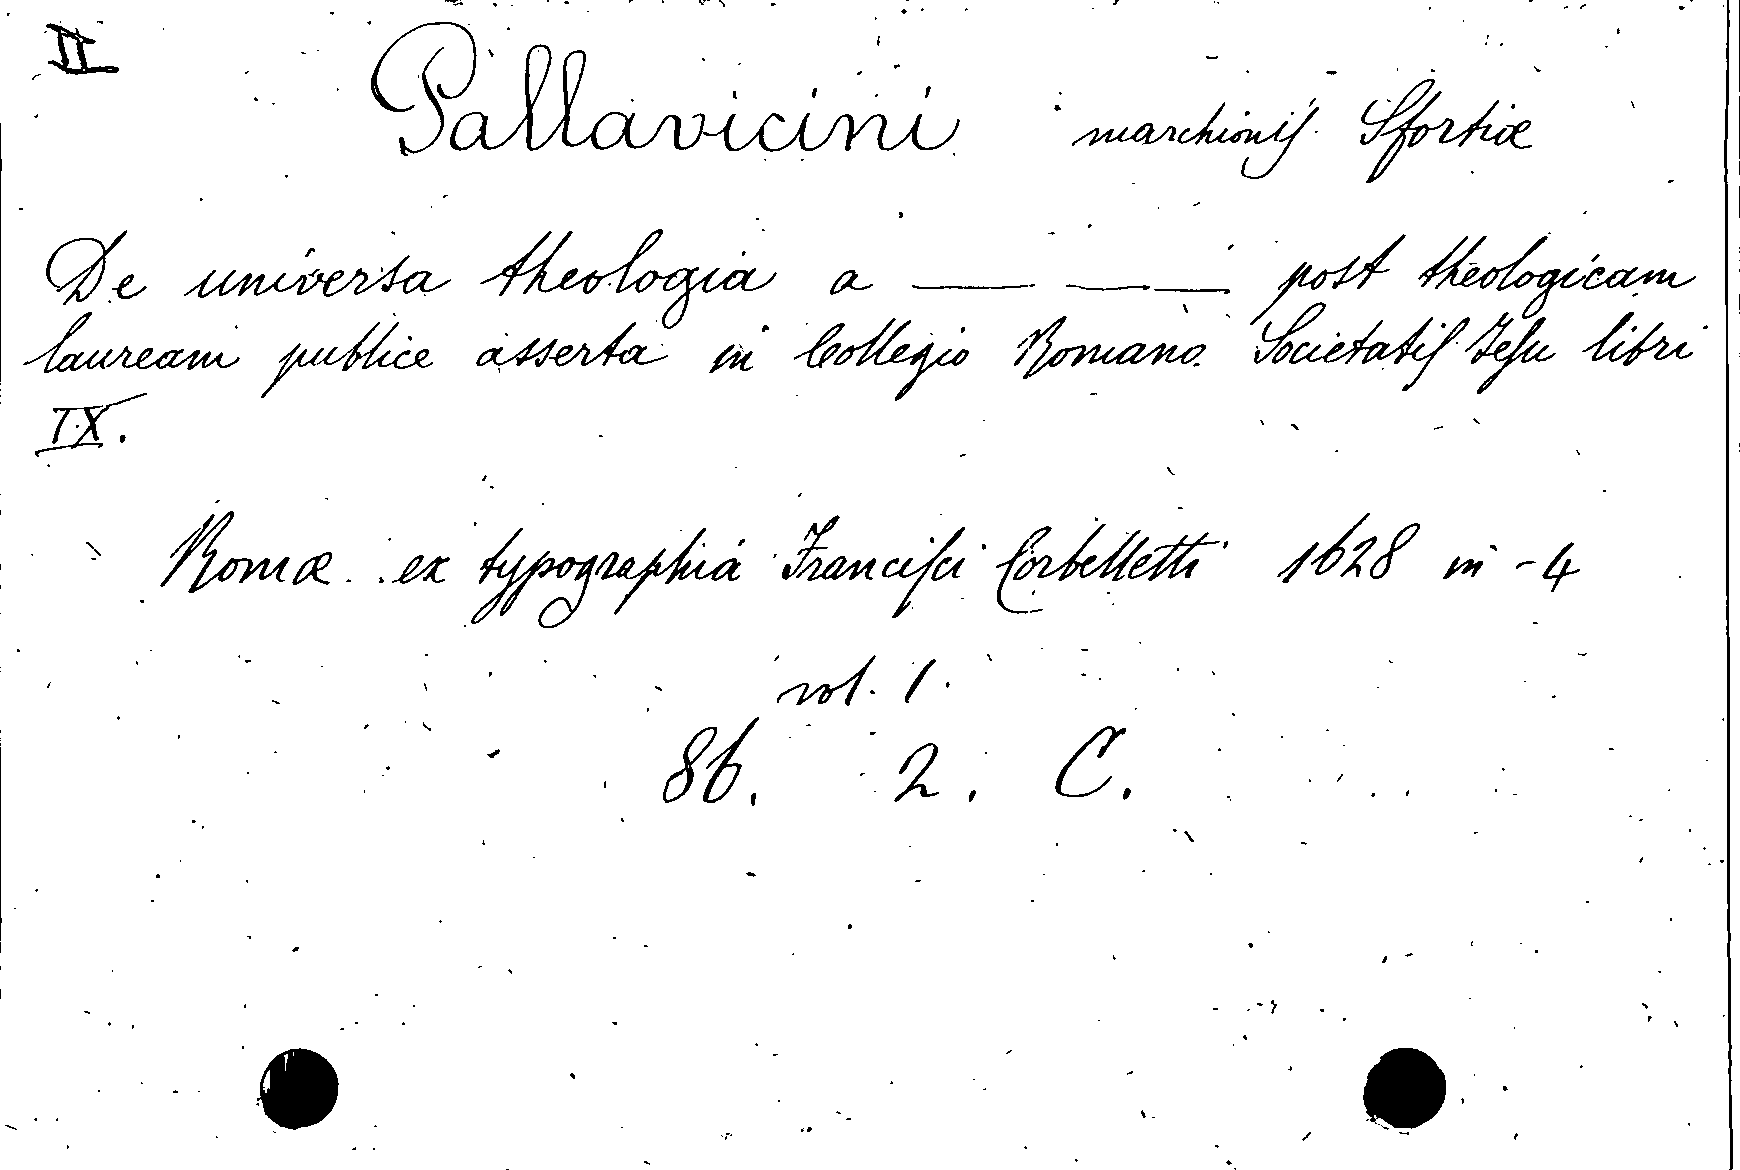 II
Pallavicini marchionis Sfortiæ
De universa theologia a — — — post theologicam
lauream publice asserta in Collegio Romano Societatis Jesu libri
IX.
Romæ ex typographia Francisci Corbelletti 1628 in -4
vol. 1.
86. 2. C.